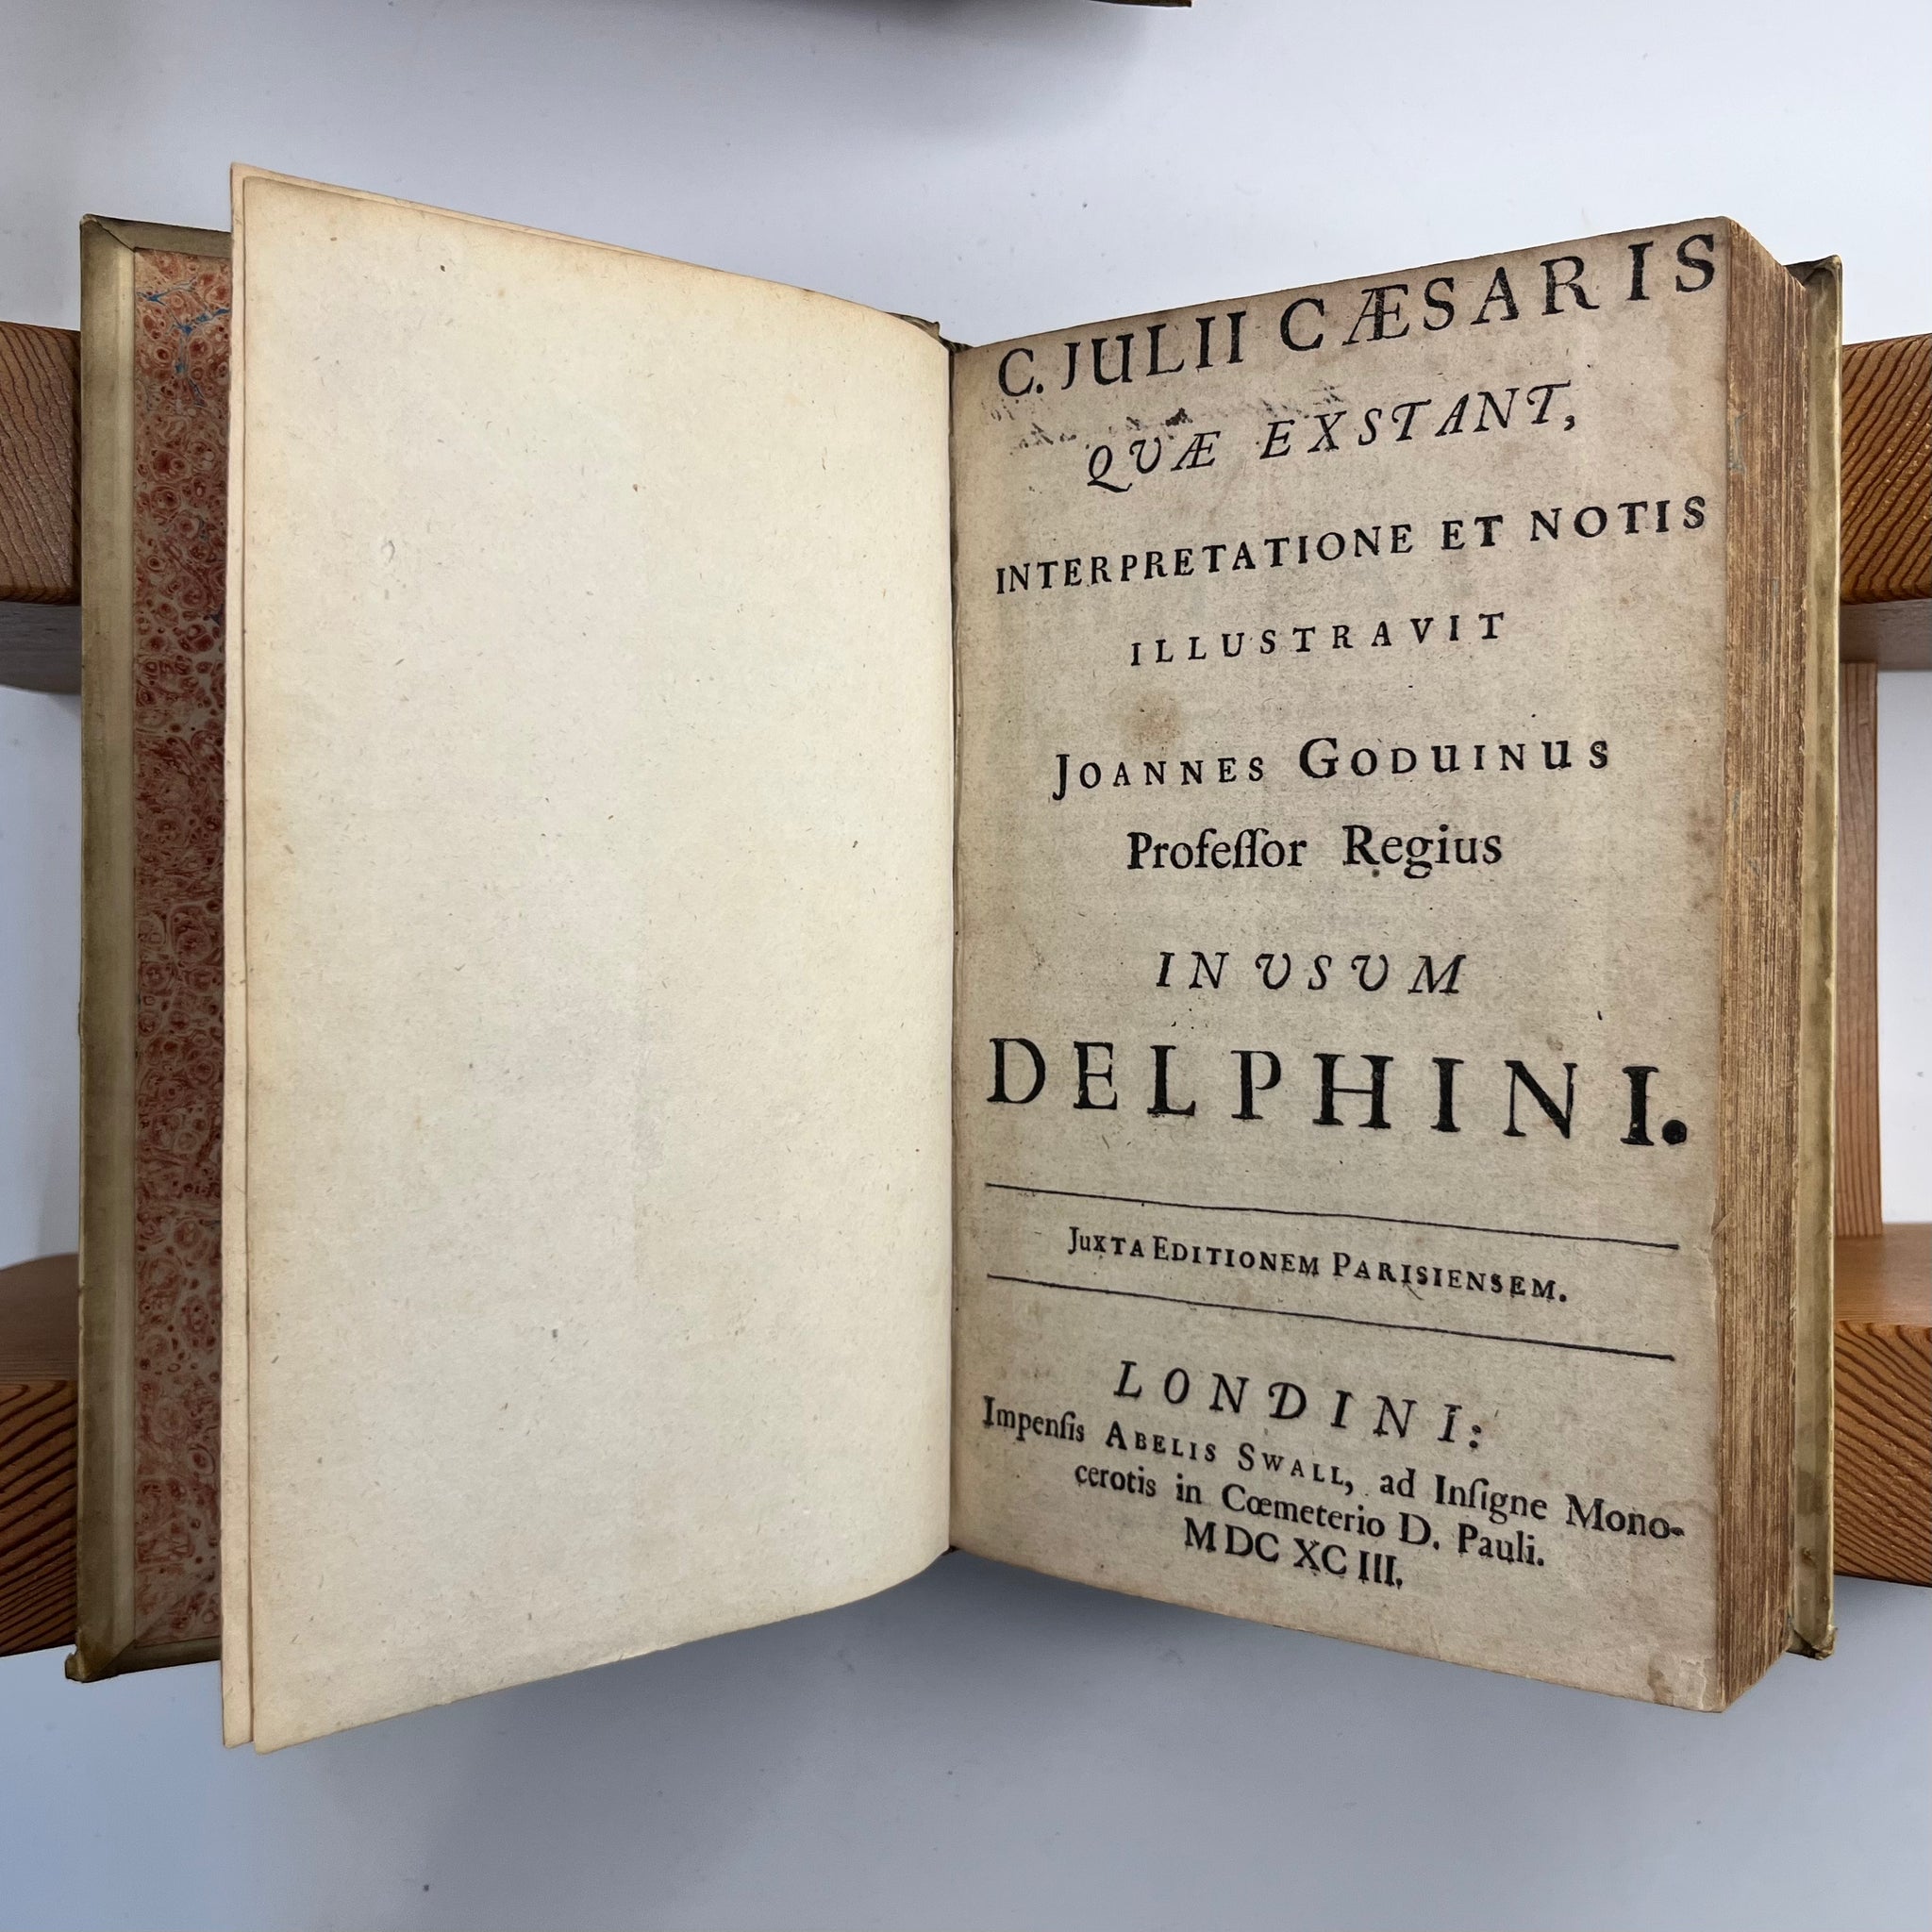 C. JULII CÆSARIS
QUÆ EXSTANT,
INTERPRETATIONE ET NOTIS
ILLUSTRAVIT
JOANNES GODUINUS
Profeſſor Regius
IN USUM
DELPHINI.
JUXTA EDITIONEM PARISIENSEM.
LONDINI:
Impenſis ABELIS SWALL, ad Inſigne Mono-
cerotis in Cœmeterio D. Pauli.
MDC XC III.